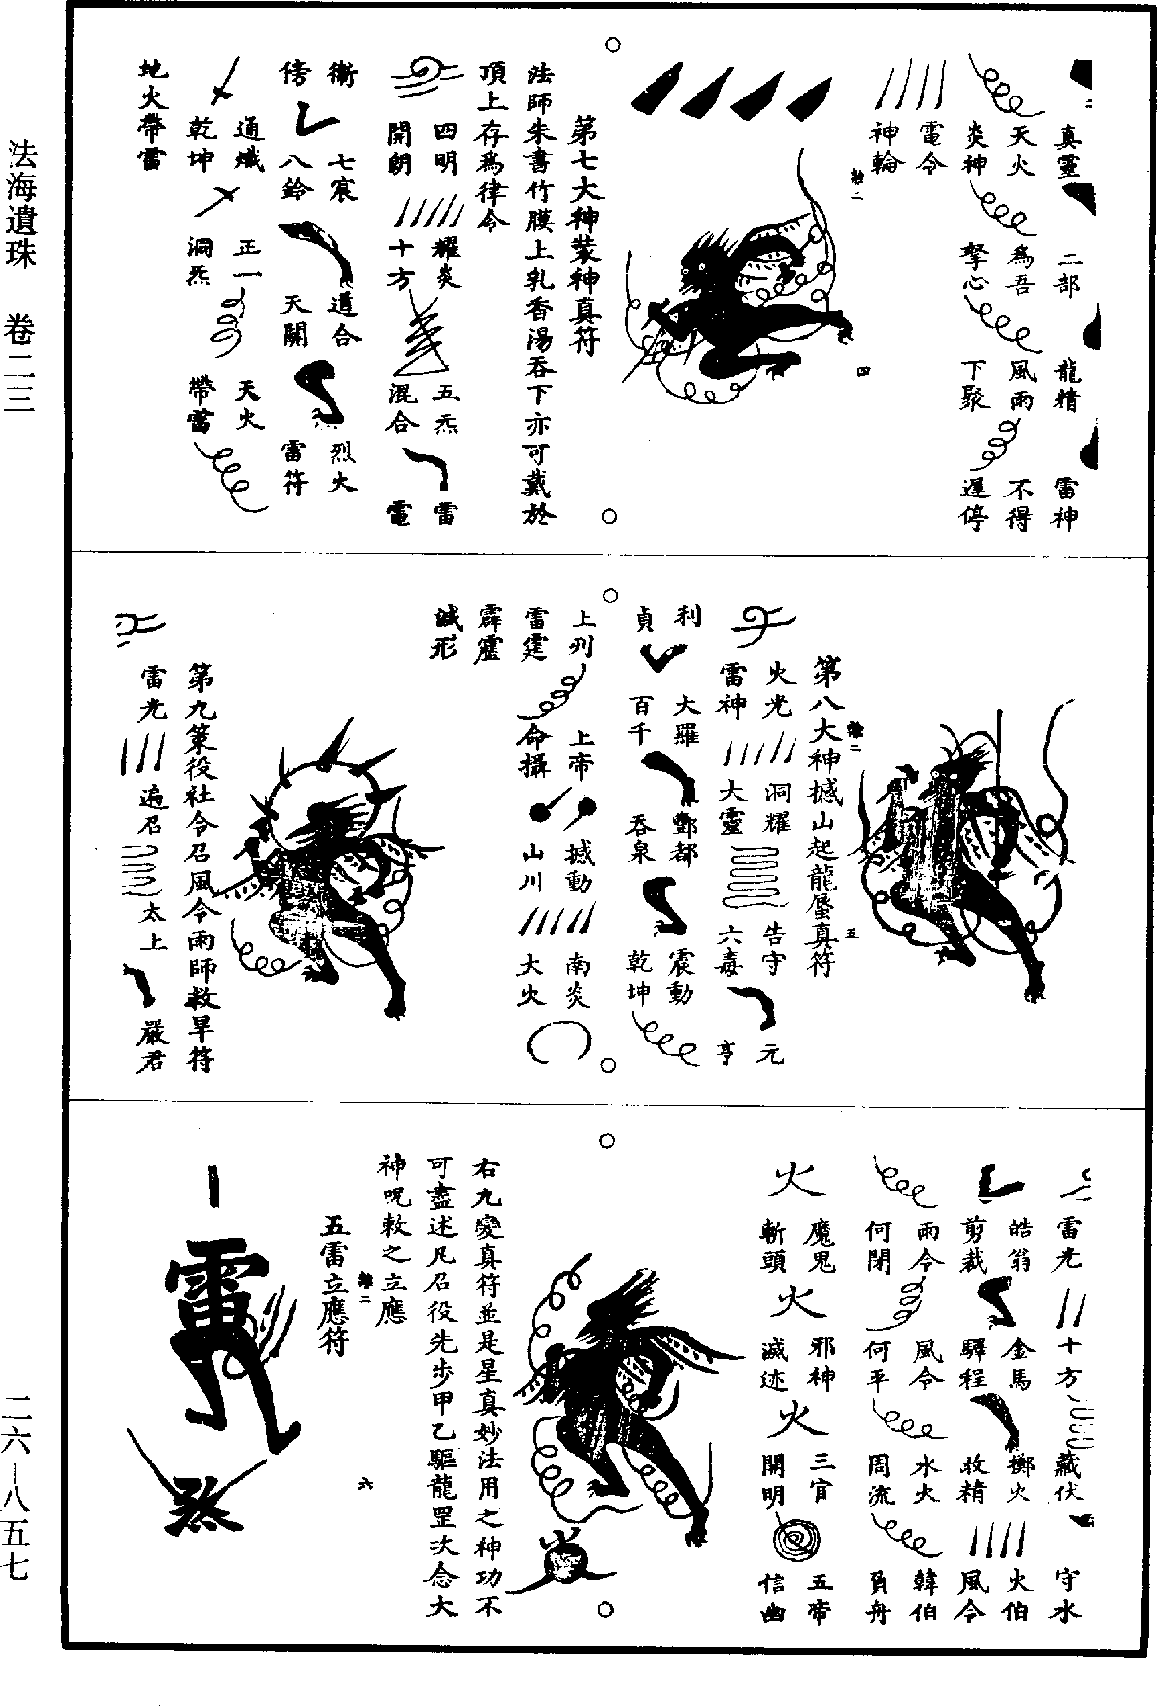 法海遺珠 卷二三
二六—八五七
真靈 二部 龍精 雷神
天火 為吾 風雨 不得
炎神 擊心 下聚 遲停
電令
神輪
四
第七大神裝神真符
法師朱書竹膜上乳香湯吞下亦可戴於
頂上存爲律令
四明 耀炎 五炁 雷
開朗 十方 混合 電
衛 七宸 道合 烈火
傍 八鈴 天關 雷符
通熾 正一 天火
乾坤 洞炁 帶雷
地火帶雷
五
第八大神撼山起龍蜃真符
火光 洞耀 告守 元
雷神 大靈 六毒 亨
利 大羅 酆都 震動
貞 百千 吞泉 乾坤
上列 上帝 撼動 南炎
雷霆 命攝 山川 大火
霹靂
滅形
第九策役社令召風令雨師救旱符
雷光 遍召 太上 嚴君
雷光 十方 藏伏 守水
皓翁 金馬 擲火 火伯
剪裁 驛程 收精 風令
雨令 風令 水火 韓伯
何閉 何平 周流 負舟
魔鬼 邪神 三官 五帝
火 火 火
斬頭 滅迹 開明 信幽
右九變真符並是星真妙法用之神功不
可盡述凡召役先步甲乙驅龍罡次念大
神呪敕之立應
六
五雷立應符
雷